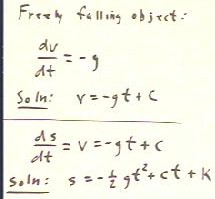 Freely falling object:
dv/dt = -g
Soln: v = -gt + C
ds/dt = v = -gt + c
soln: s = -½gt² + ct + K